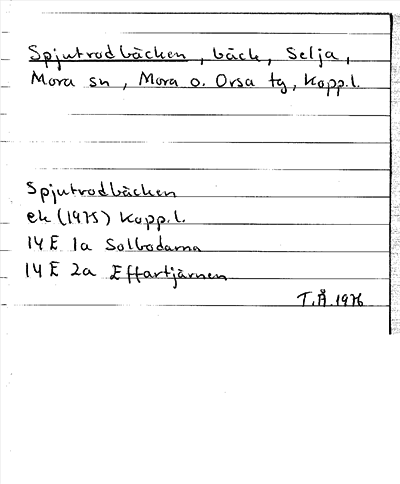 Spjutrodbäcken, bäck, Selja,
Mora sn, Mora o. Orsa tg, Kopp.l.
Spjutrodbäcken
ek (1975) Kopp.l.
14 E 1a Solbodarna
14 E 2a Effartjärnen
T.Å. 1976